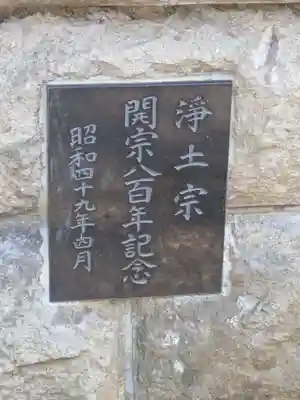 浄土宗
開宗八百年記念
昭和四十九年四月